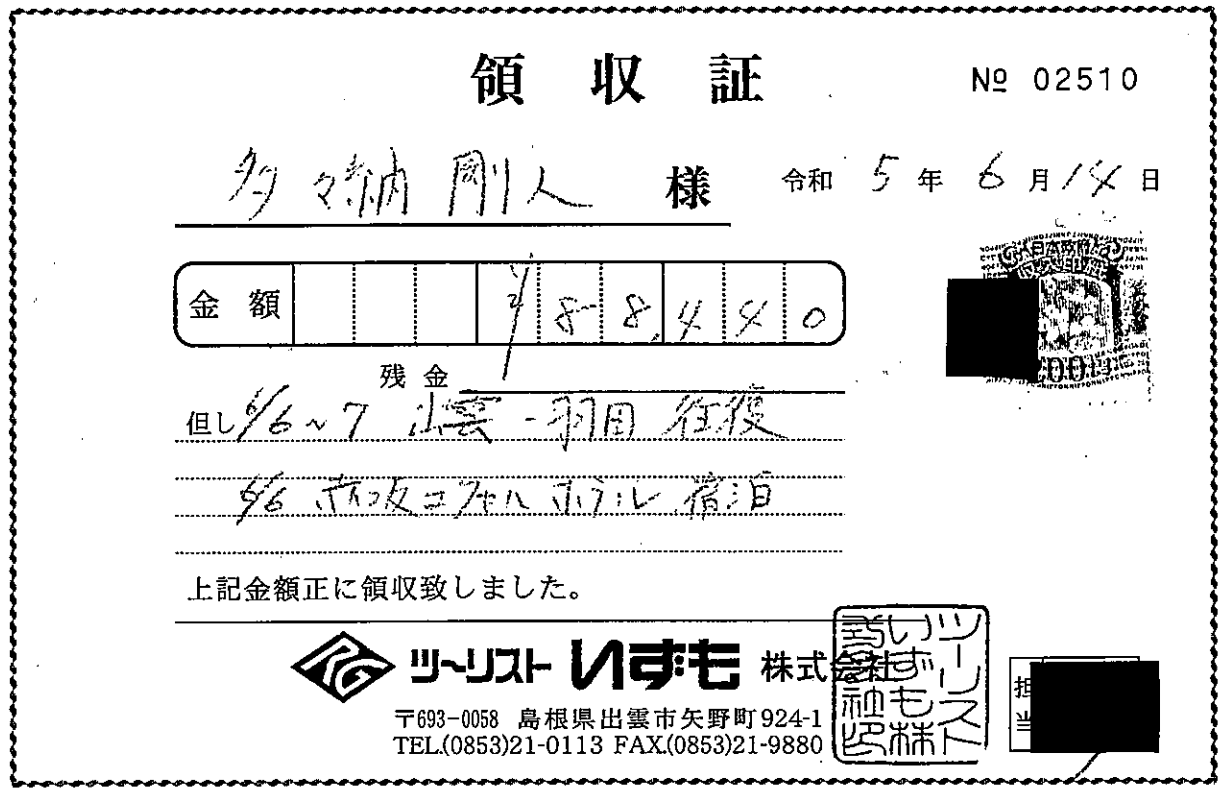 領収証
№ 02510
多々納 剛人 様
令和 5 年 6 月 14 日
金額 ¥88,440
残金
但し 6/6~7 出雲-羽田 往復
6/6 赤坂エクセルホテル 宿泊
上記金額正に領収致しました。
RG ツーリスト いずも 株式会社
〒693-0058 島根県出雲市矢野町924-1
TEL.(0853)21-0113 FAX.(0853)21-9880
ツーリストいずも株式会社印
日本政府
収入印紙
200円
担当